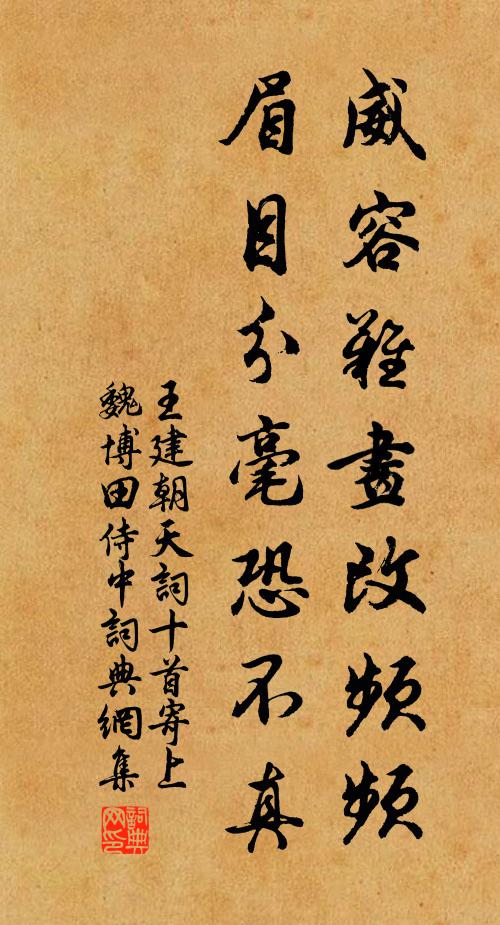 威容難畫改頻頻
眉目分毫恐不真
王建朝天詞十首寄上
魏博田侍中詞典網集
詞典网印